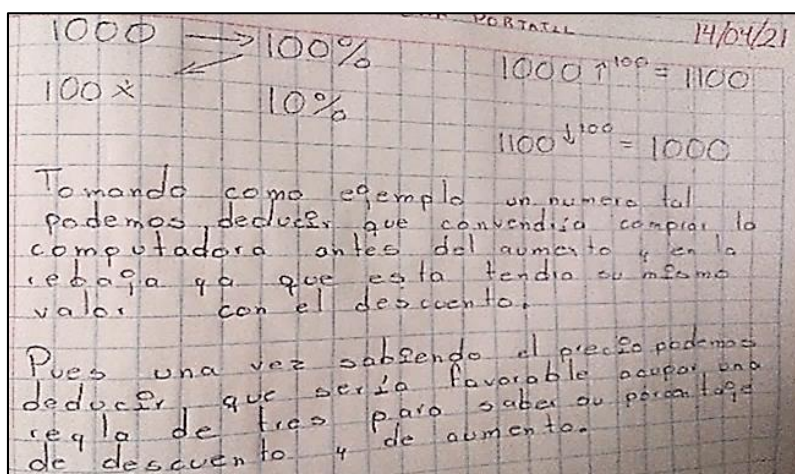 PORTATIL 14/04/21
1000 → 100%
100 x 10%
1000 ↑100 = 1100
1100 ↓100 = 1000
Tomando como egemplo un numero tal
podemos deducir que convendria comprar la
computadora antes del aumento y en la
rebaja ya que esta tendia su mismo
valor con el descuento.
Pues una vez sabiendo el precio podemos
deducir que sería favorable ocupar una
regla de tres para saber su porcentage
de descuento y de aumento.